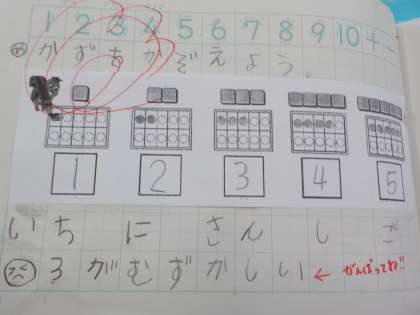 1 2 3 4 5 6 7 8 9 10 + -
め かずをかぞえよう。
1 2 3 4 5
いち に さん し ご
3がむずかしい ← がんばってね!!